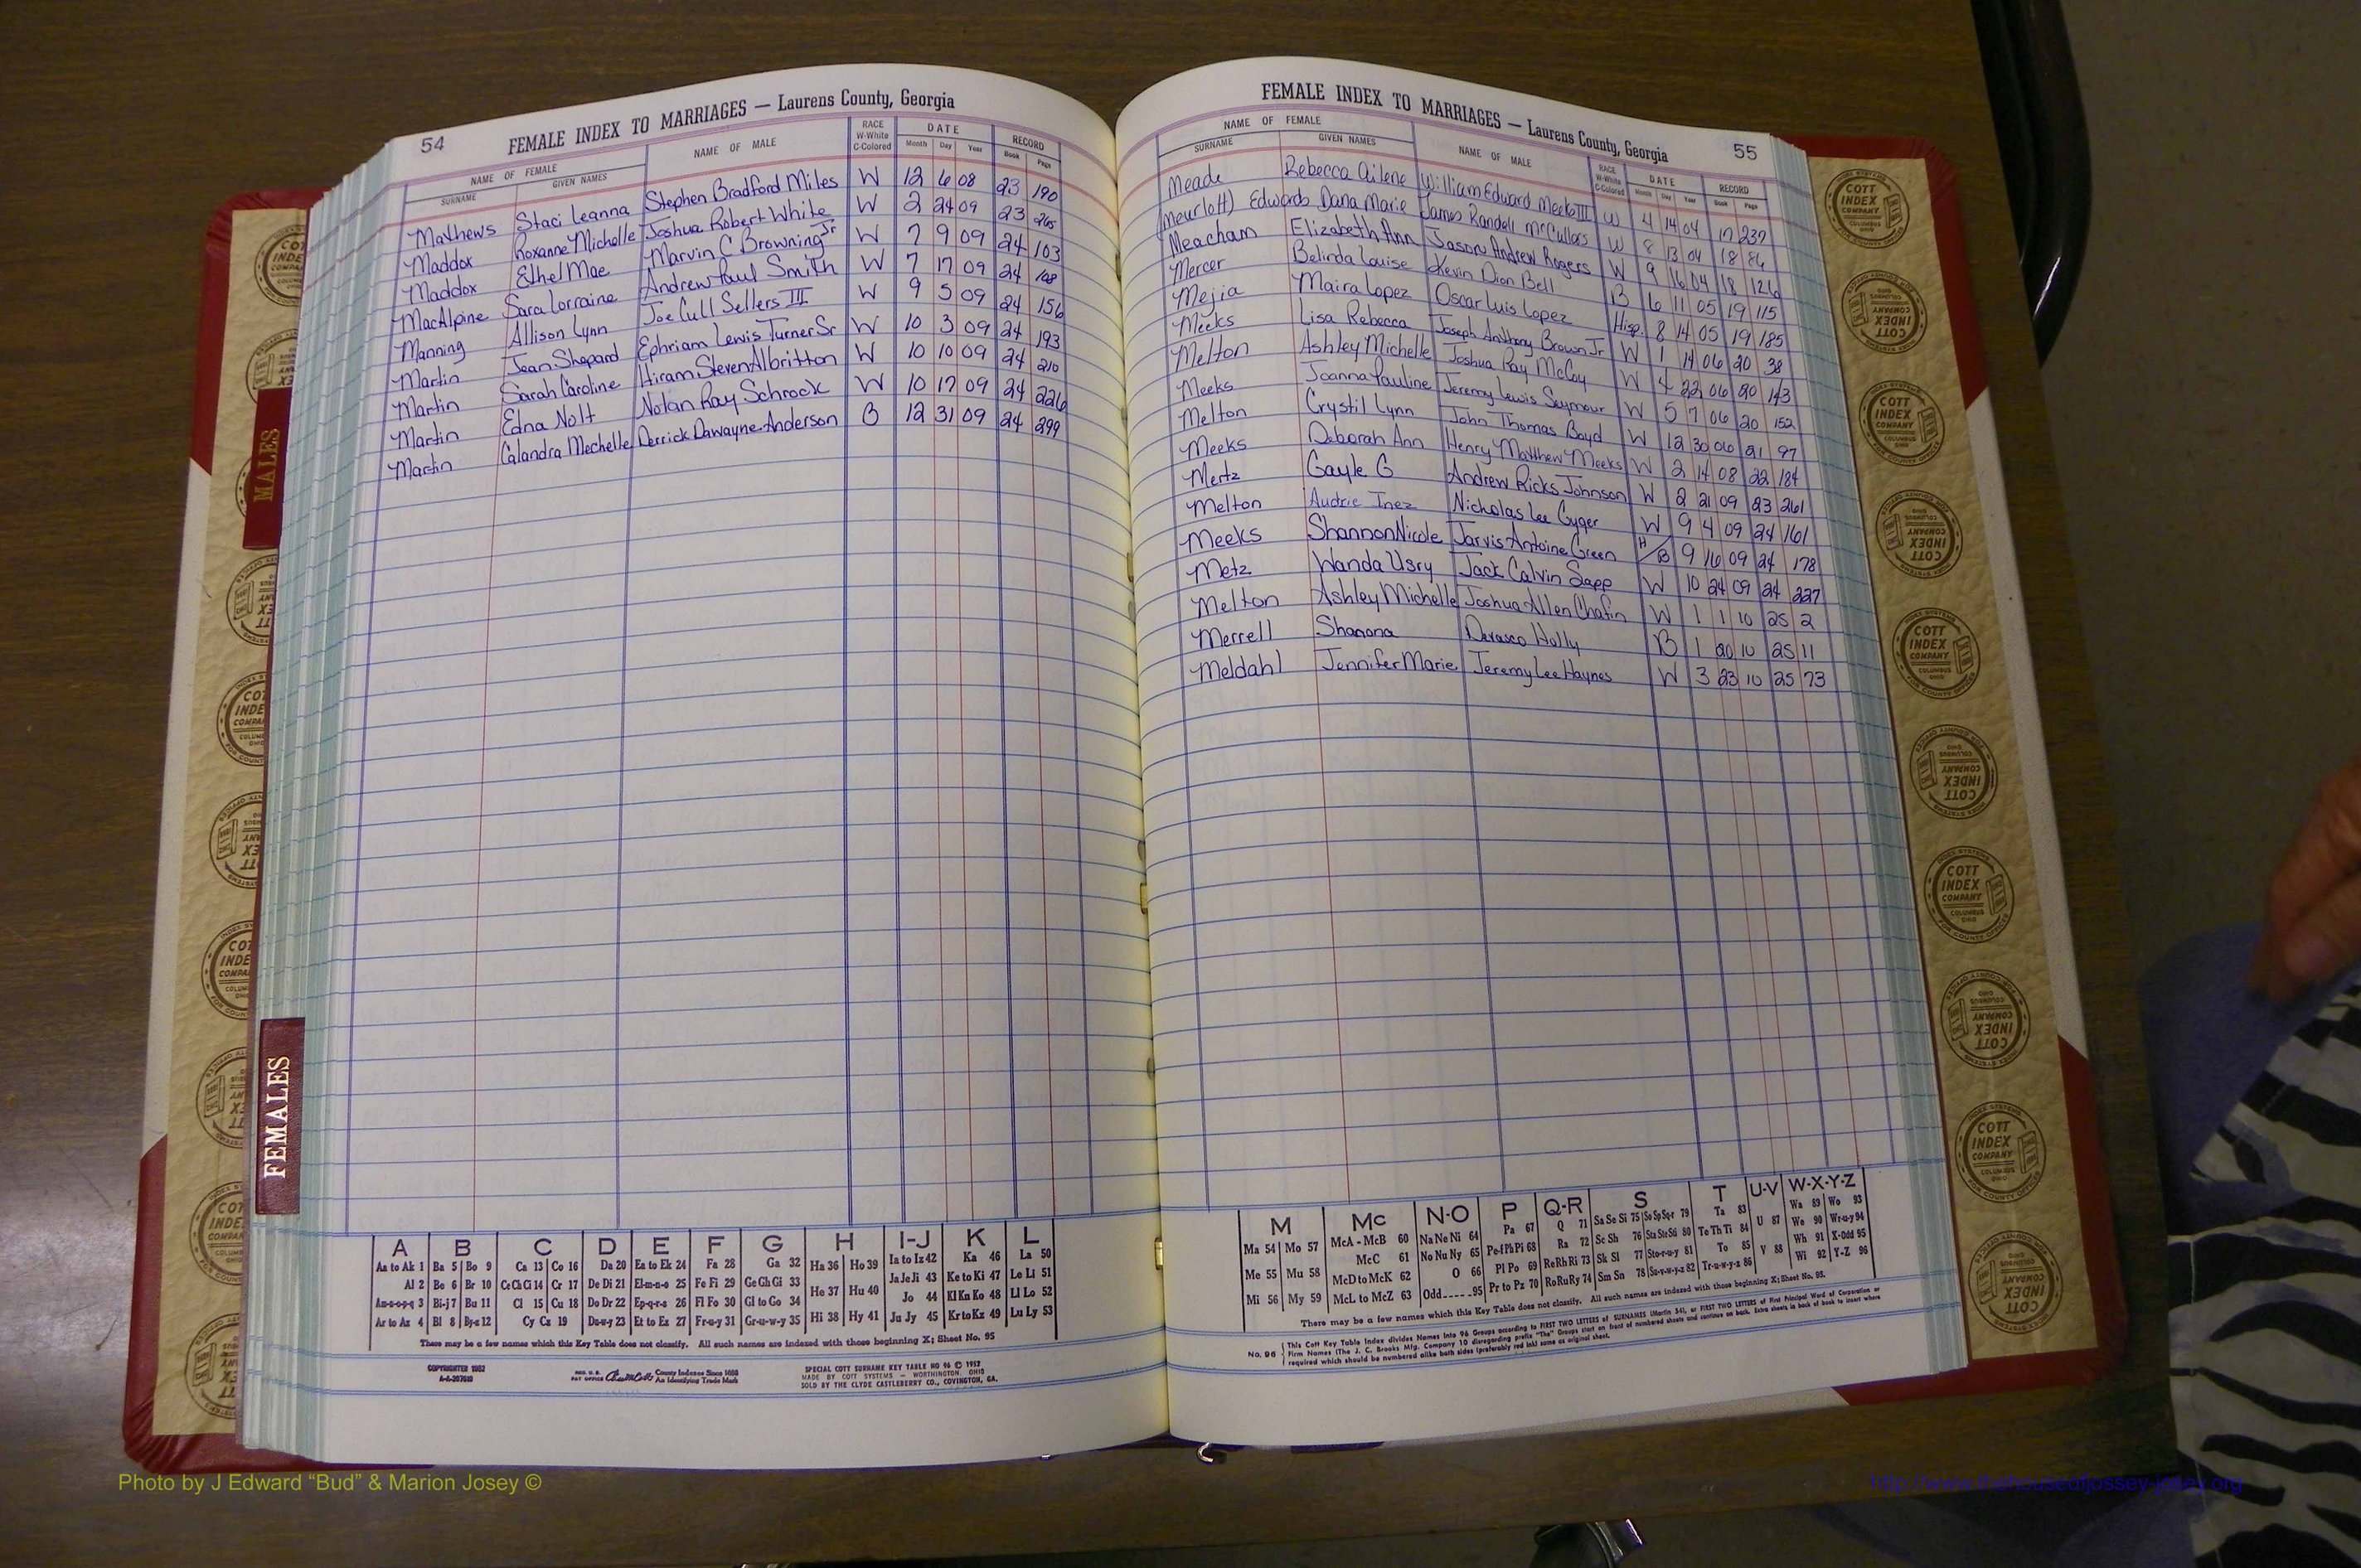 54
FEMALE INDEX TO MARRIAGES — Laurens County, Georgia
NAME OF FEMALE NAME OF MALE RACE W-White C-Colored DATE RECORD
SURNAME GIVEN NAMES Month Day Year Book Page
Mathews Staci Leanna Stephen Bradford Miles W 12 6 08 23 190
Maddox Roxanne Michelle Joshua Robert White W 2 24 09 23 265
Maddox Ethel Mae Marvin C Browning Jr W 7 9 09 24 103
MacAlpine Sara Lorraine Andrew Paul Smith W 7 17 09 24 108
Manning Allison Lynn Joe Cull Sellers III W 9 5 09 24 156
Martin Jean Shepard Ephriam Lewis Turner Sr W 10 3 09 24 193
Martin Sarah Caroline Hiram Steven Albritton W 10 10 09 24 210
Martin Edna Nolt Nolan Ray Schrock W 10 17 09 24 226
Martin Calandra Mechelle Derrick Dawayne Anderson B 12 31 09 24 299
A B C D E F G H I-J K L
Aa to Ak 1 Ba 5 Bo 9 Ca 13 Co 16 Da 20 Ea to Ek 24 Fa 28 Ga 32 Ha 36 Ho 39 Ia to Iz 42 Ka 46 La 50
Al 2 Be 6 Br 10 Ce Ch Ci 14 Cr 17 De Di 21 El-m-n-o 25 Fe Fi 29 Ge Gh Gi 33 He 37 Hu 40 Ja Je Ji 43 Ke to Ki 47 Le Li 51
Am-n-o-p-q 3 Bi-j 7 Bu 11 Cl 15 Cu 18 Do Dr 22 Ep-q-r-s 26 Fl Fo 30 Gl to Go 34 Jo 44 Kl Kn Ko 48 Ll Lo 52
Ar to Az 4 Bl 8 By-z 12 Cy Cz 19 Du-w-y 23 Et to Ez 27 Fr-u-y 31 Gr-u-w-y 35 Hi 38 Hy 41 Ju Jy 45 Kr to Kz 49 Lu Ly 53
There may be a few names which this Key Table does not classify. All such names are indexed with those beginning X; Sheet No. 95
REG. U.S. PAT OFFICE County Indexes Since 1888 An Identifying Trade Mark
SPECIAL COTT SURNAME KEY TABLE NO 96 © 1957
MADE BY COTT SYSTEMS — WORTHINGTON, OHIO
SOLD BY THE CLYDE CASTLEBERRY CO., COVINGTON, GA.
FEMALE INDEX TO MARRIAGES — Laurens County, Georgia
55
NAME OF FEMALE NAME OF MALE RACE W-White C-Colored DATE RECORD
SURNAME GIVEN NAMES Month Day Year Book Page
Meade Rebecca Ailene William Edward Meeks III W 4 14 04 17 237
(Meurlott) Edwards Dana Marie James Randall McCullars W 8 13 04 18 86
Meacham Elizabeth Ann Jason Andrew Rogers W 9 16 04 18 126
Mercer Belinda Louise Kevin Dion Bell B 6 11 05 19 115
Mejia Maira Lopez Oscar Luis Lopez Hisp. 8 14 05 19 185
Meeks Lisa Rebecca Joseph Anthony Brown Jr W 1 14 06 20 38
Melton Ashley Michelle Joshua Ray McCoy W 4 22 06 20 143
Meeks Joanna Pauline Jeremy Lewis Seymour W 5 7 06 20 152
Melton Crystil Lynn John Thomas Boyd W 12 30 06 21 97
Meeks Deborah Ann Henry Matthew Meeks W 2 14 08 22 184
Mertz Gayle G Andrew Ricks Johnson W 2 21 09 23 261
Melton Audrie Inez Nicholas Lee Gyger W 9 4 09 24 161
Meeks Shannon Nicole Jarvis Antoine Green H/B 9 16 09 24 178
Metz Wanda Usry Jack Calvin Sapp W 10 24 09 24 227
Melton Ashley Michelle Joshua Allen Chafin W 1 1 10 25 2
Merrell Shanona Holly B 1 20 10 25 11
Meldahl Jennifer Marie Jeremy Lee Haynes W 3 23 10 25 73
M Mc N-O P Q-R S T U-V W-X-Y-Z
Ma 54 Mo 57 McA - McB 60 Na Ne Ni 64 Pa 67 Q 71 Sa Se Si 75 So Sp Sq-r 79 Ta 83 U 87 Wa 89 Wo 93
Me 55 Mu 58 McC 61 No Nu Ny 65 Pe-f Ph Pi 68 Ra 72 Sc Sh 76 Sta Ste Sti 80 Te Th Ti 84 We 90 Wr-u-y 94
McD to McK 62 O 66 Pl Po 69 Re Rh Ri 73 Sk Sl 77 Sto-r-u-y 81 To 85 V 88 Wh 91 X-Odd 95
Mi 56 My 59 McL to McZ 63 Odd 95 Pr to Pz 70 Ro Ru Ry 74 Sm Sn 78 Su-v-w-y-z 82 Tr-u-w-y-z 86 Wi 92 Y-Z 96
There may be a few names which this Key Table does not classify. All such names are indexed with those beginning X; Sheet No. 95.
No. 96 This Cott Key Table Index divides Names into 96 Groups according to FIRST TWO LETTERS of SURNAMES (Martin 54), or FIRST TWO LETTERS of First Principal Word of Corporation or
Firm Names (The J. C. Brooks Mfg. Company 10 disregarding prefix "The" Groups start on front of numbered sheets and continue on back. Extra sheets in back of book to insert where
required which should be numbered alike both sides (preferably red ink) same as original sheet.
MALES
FEMALES
COTT INDEX COMPANY COLUMBUS OHIO
INDEX SYSTEMS FOR COUNTY OFFICES
Photo by J Edward “Bud” & Marion Josey ©
http://www.thehouseofjossey-josey.org